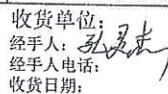 收货单位：
经手人：
经手人电话：
收货日期：